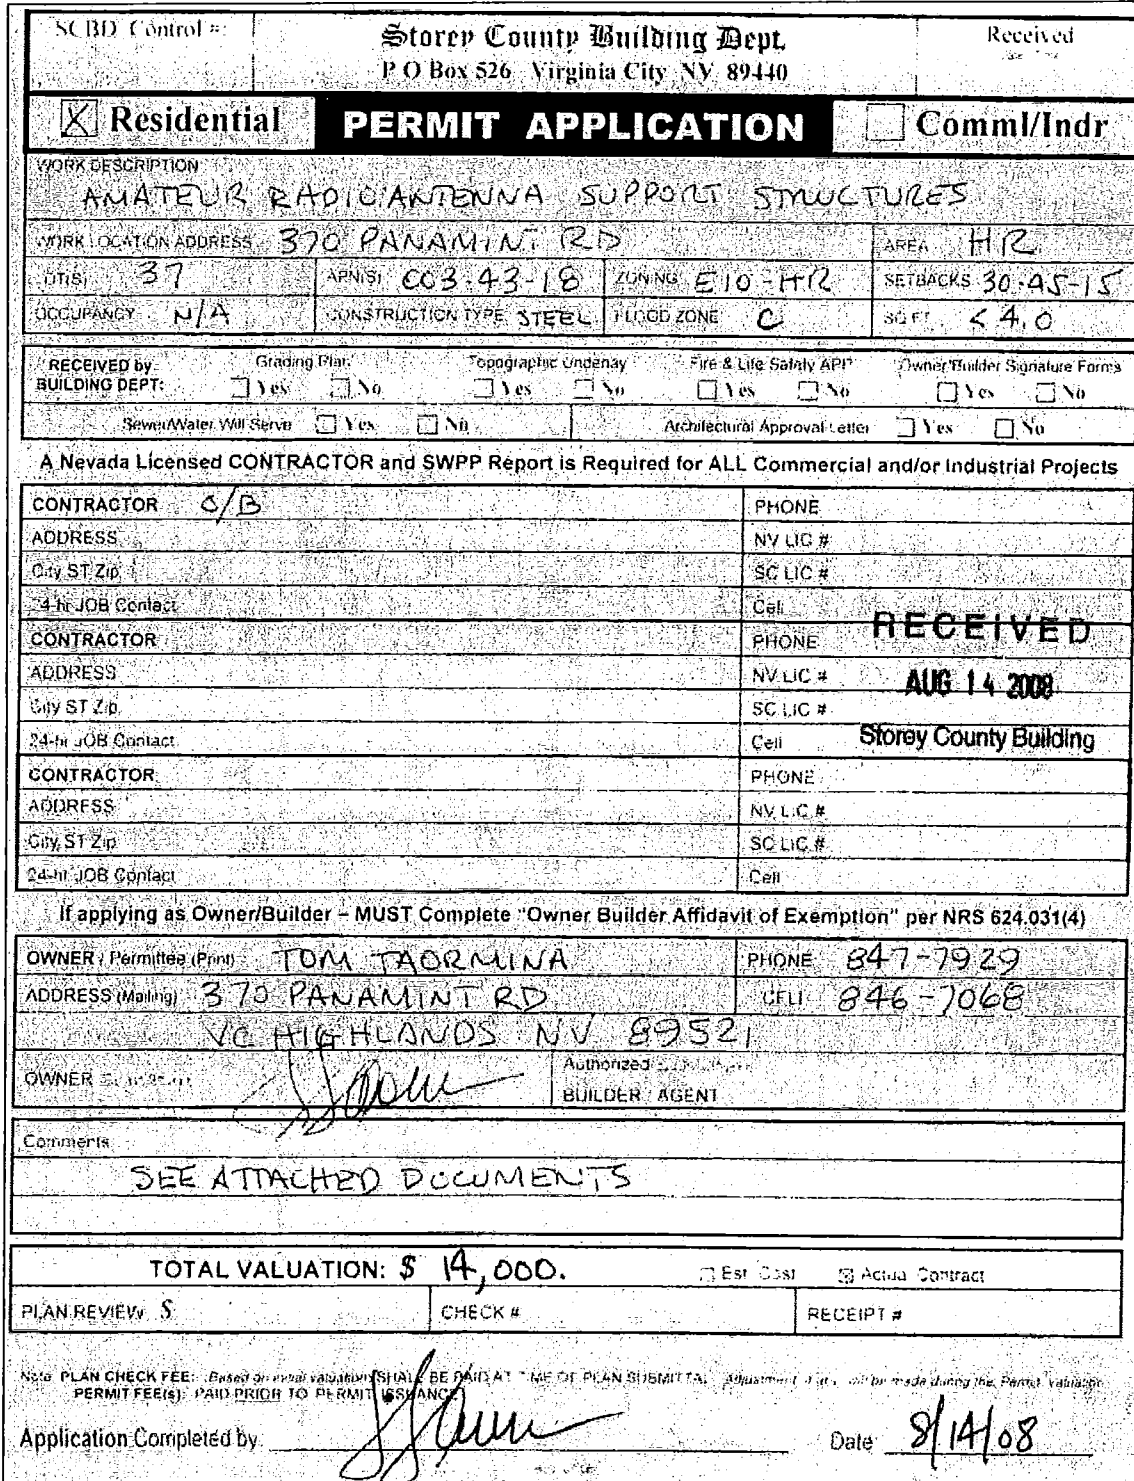 SCBD Control #:
Storey County Building Dept.
P O Box 526 Virginia City NV 89440
Received
☒ Residential
PERMIT APPLICATION
☐ Comml/Indr
WORK DESCRIPTION
AMATEUR RADIO/ANTENNA SUPPORT STRUCTURES
WORK LOCATION ADDRESS 370 PANAMINT RD
AREA HR
37
APN(S) 003-43-18
ZONING E10-HR
SETBACKS 30-45-15
OCCUPANCY N/A
CONSTRUCTION TYPE STEEL
FLOOD ZONE C
SQ FT < 4.0
RECEIVED by BUILDING DEPT:
Grading Plan ☐ Yes ☐ No
Topographic Underlay ☐ Yes ☐ No
Fire & Life Safety APP ☐ Yes ☐ No
Owner/Builder Signature Forms ☐ Yes ☐ No
Sewer/Water Will Serve ☐ Yes ☐ No
Architectural Approval Letter ☐ Yes ☐ No
A Nevada Licensed CONTRACTOR and SWPP Report is Required for ALL Commercial and/or Industrial Projects
CONTRACTOR O/B
PHONE
ADDRESS
NV LIC #
City ST Zip
SC LIC #
24-hr JOB Contact
Cell
RECEIVED
CONTRACTOR
PHONE
ADDRESS
NV LIC #
AUG 14 2008
City ST Zip
SC LIC #
24-hr JOB Contact
Cell
Storey County Building
CONTRACTOR
PHONE
ADDRESS
NV LIC #
City ST Zip
SC LIC #
24-hr JOB Contact
Cell
If applying as Owner/Builder – MUST Complete "Owner Builder Affidavit of Exemption" per NRS 624.031(4)
OWNER / Permittee (Print) TOM TAORMINA
PHONE 847-7929
ADDRESS (Mailing) 370 PANAMINT RD
CELL 846-7068
VC HIGHLANDS NV 89521
OWNER
Authorized
BUILDER / AGENT
Comments
SEE ATTACHED DOCUMENTS
TOTAL VALUATION: $ 14,000.
☐ Est Cost
☒ Actual Contract
PLAN REVIEW $
CHECK #
RECEIPT #
Note PLAN CHECK FEE: Based on initial valuation SHALL BE PAID AT TIME OF PLAN SUBMITTAL Adjustment will be made during the Permit Valuation
PERMIT FEE(s): PAID PRIOR TO PERMIT ISSUANCE
Application Completed by
Date 8/14/08